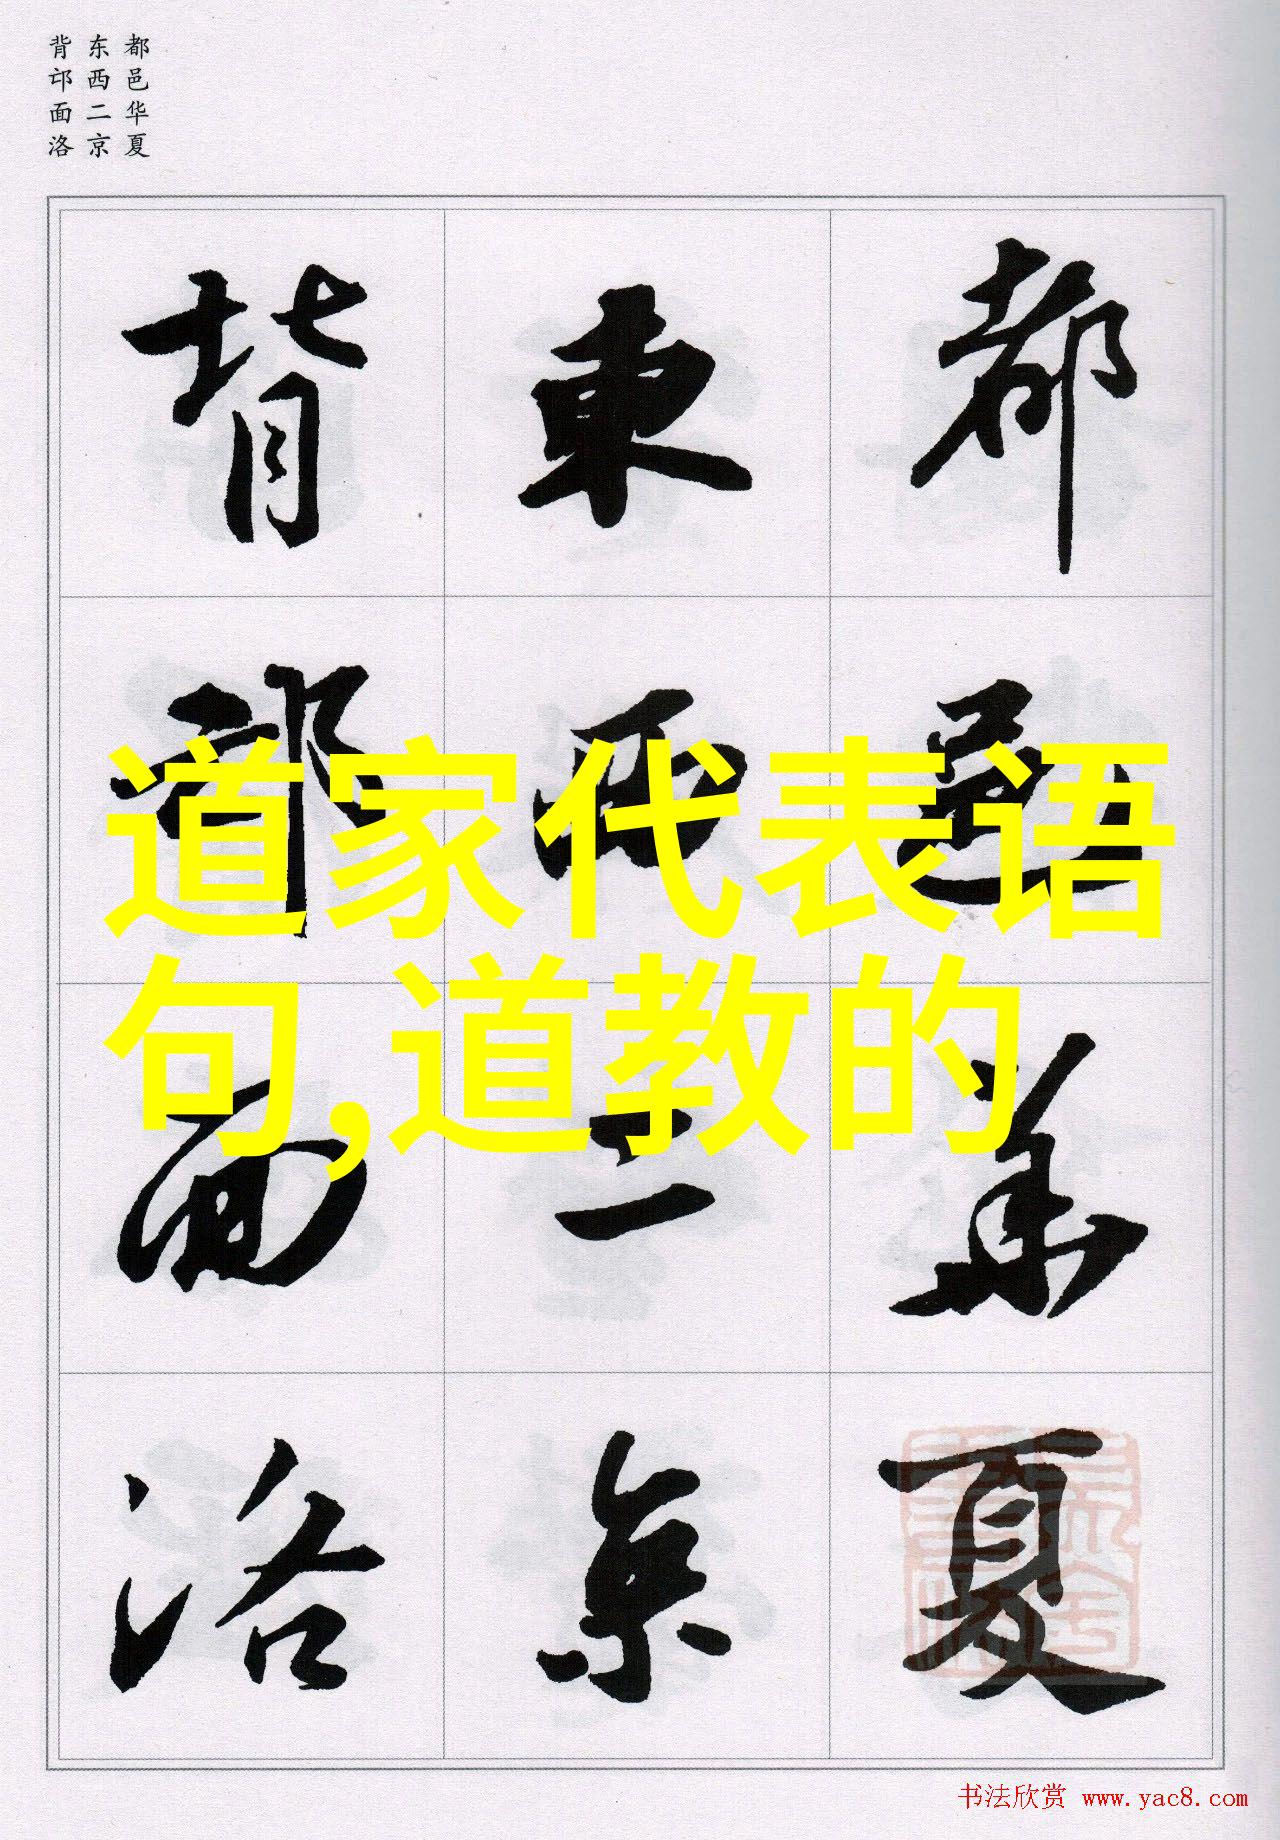 都邑华夏
东西二京
背邙面洛
都邑華夏
東西二京
背邙面洛
道家代表语
句,道教的
书法欣赏 www.yac8.com